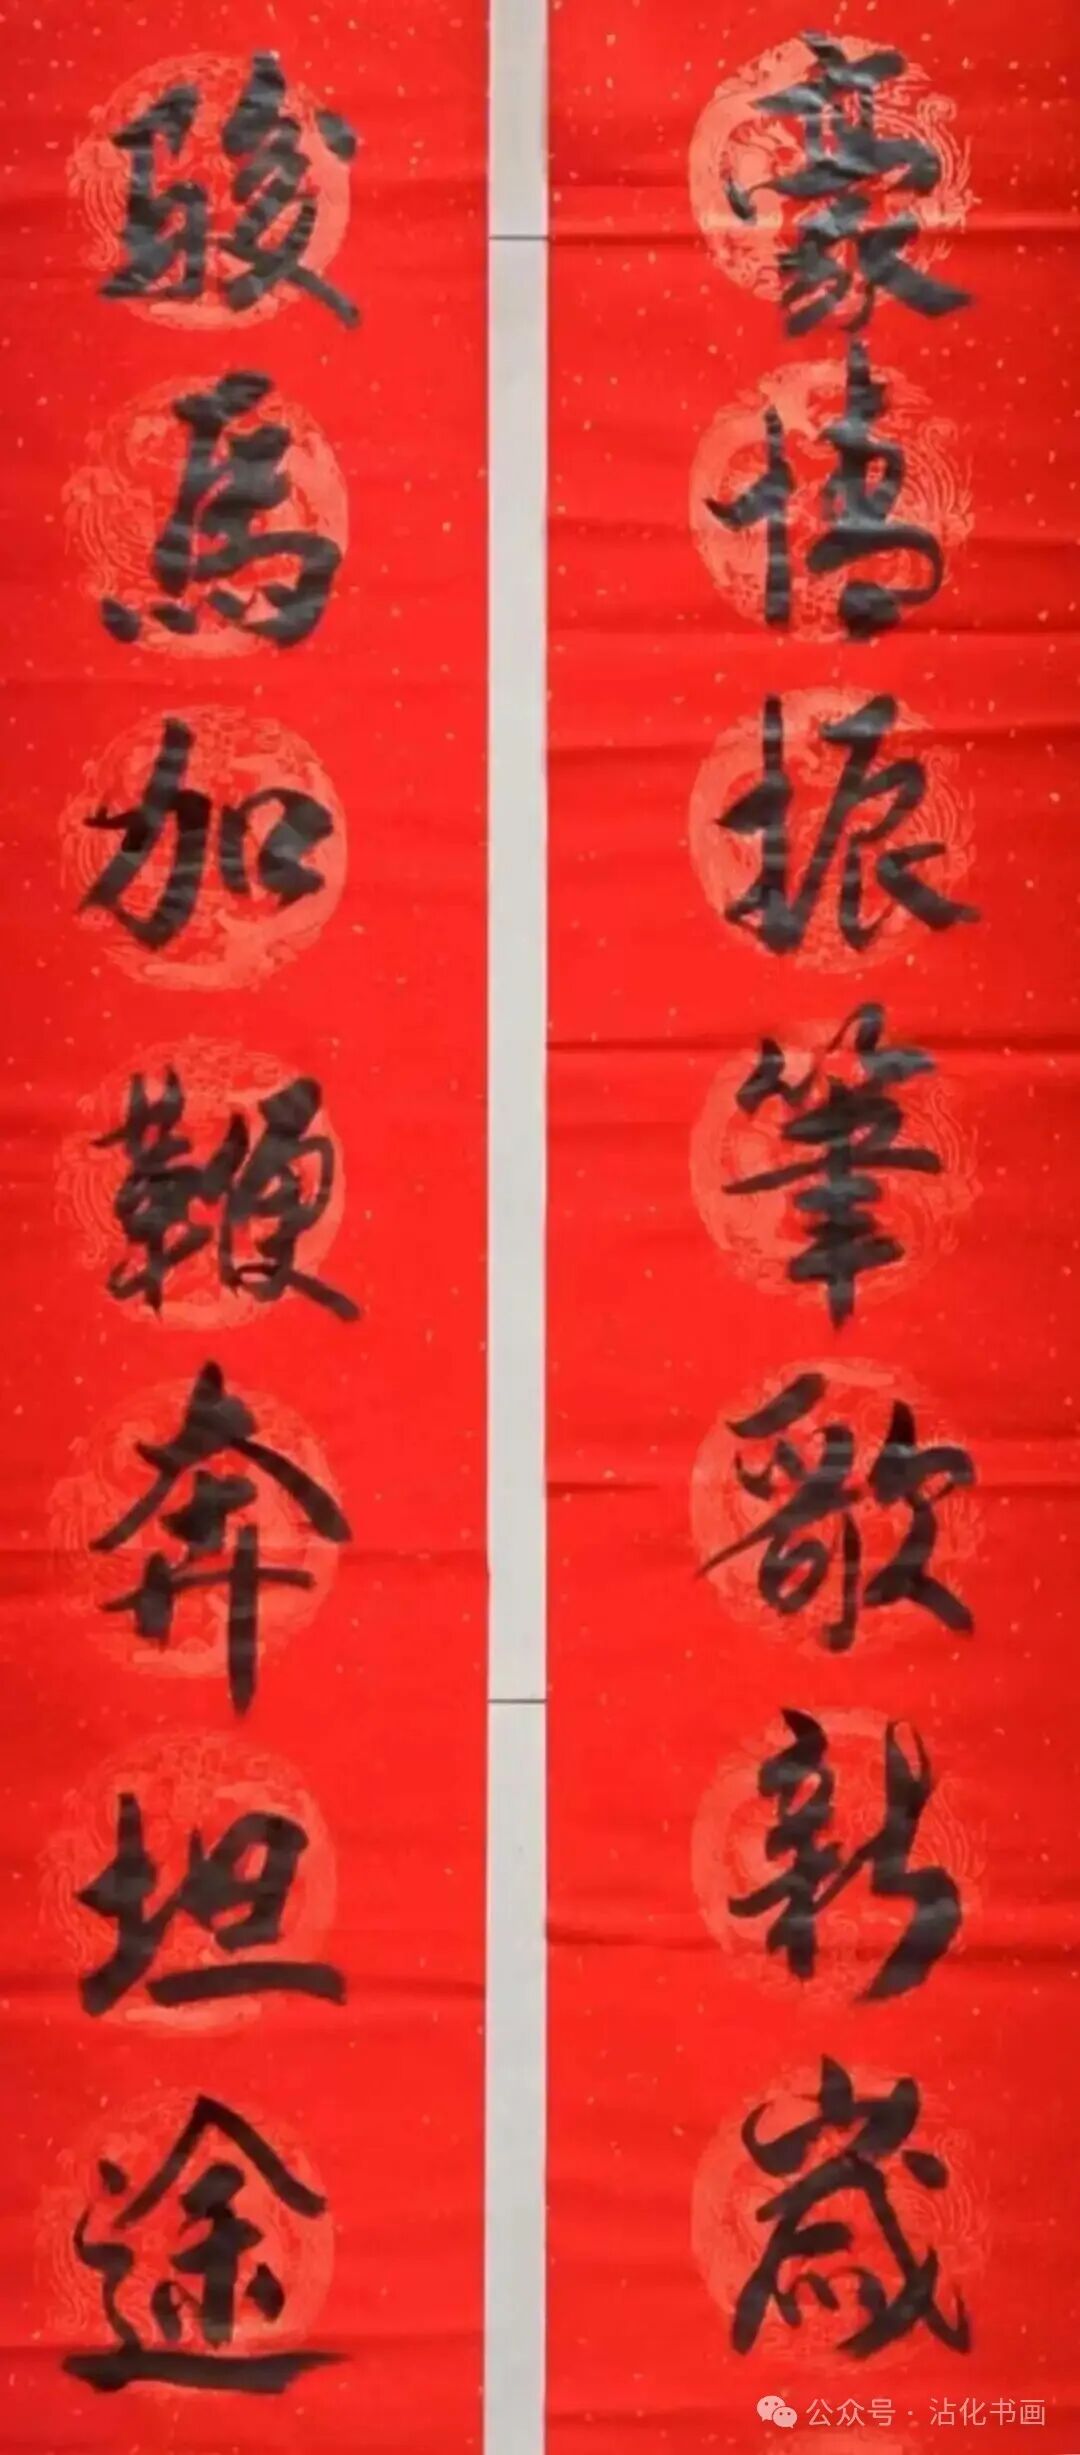 豪情振筆歌新歲
駿馬加鞭奔坦途
公众号 · 沾化书画